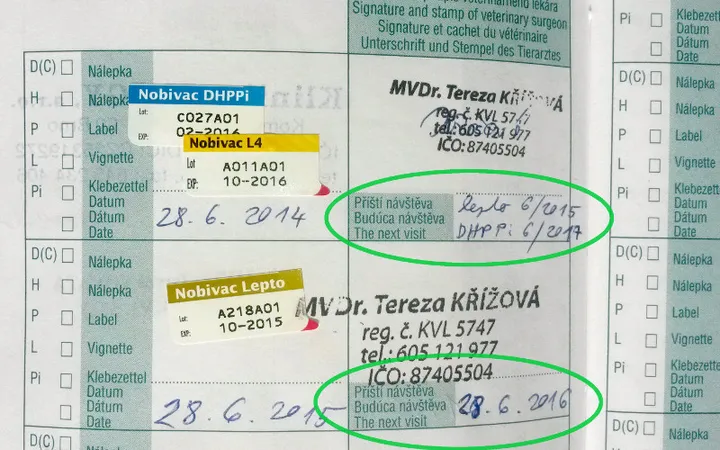 veterinárneho lekára
Signature and stamp of veterinary surgeon
Signature et cachet du vétérinaire
Unterschrift und Stempel des Tierarztes
Pi
Klebezettel
Datum
Dátum
Date
D(C)
Nálepka
H
Nálepka
P
Label
L
Vignette
Pi
Klebezettel
Datum
Dátum
Date
Nobivac DHPPi
Lot:
C027A01
EXP:
02-2016
Nobivac L4
Lot:
A011A01
EXP:
10-2016
28.6.2014
MVDr. Tereza KŘÍŽOVÁ
reg. č. KVL 5747
tel.: 605 121 977
IČO: 87405504
Příští návštěva
Budúca návštěva
The next visit
lepto 6/2015
DHPPi 6/2017
D(C)
Nálepka
H
Nálepka
P
Label
L
Vignette
Pi
Klebezettel
Datum
Dátum
Date
D(C)
Nálepka
H
Nálepka
P
Label
L
Vignette
Pi
Klebezettel
Datum
Dátum
Date
Nobivac Lepto
Lot:
A218A01
EXP:
10-2015
28.6.2015
MVDr. Tereza KŘÍŽOVÁ
reg. č. KVL 5747
tel.: 605 121 977
IČO: 87405504
Příští návštěva
Budúca návštěva
The next visit
28.6.2016
D(C)
Nálepka
H
Nálepka
P
Label
L
Vignette
Pi
Klebezettel
Datum
Dátum
Date
D(C)
Nálepka
D(C)
Nálepka